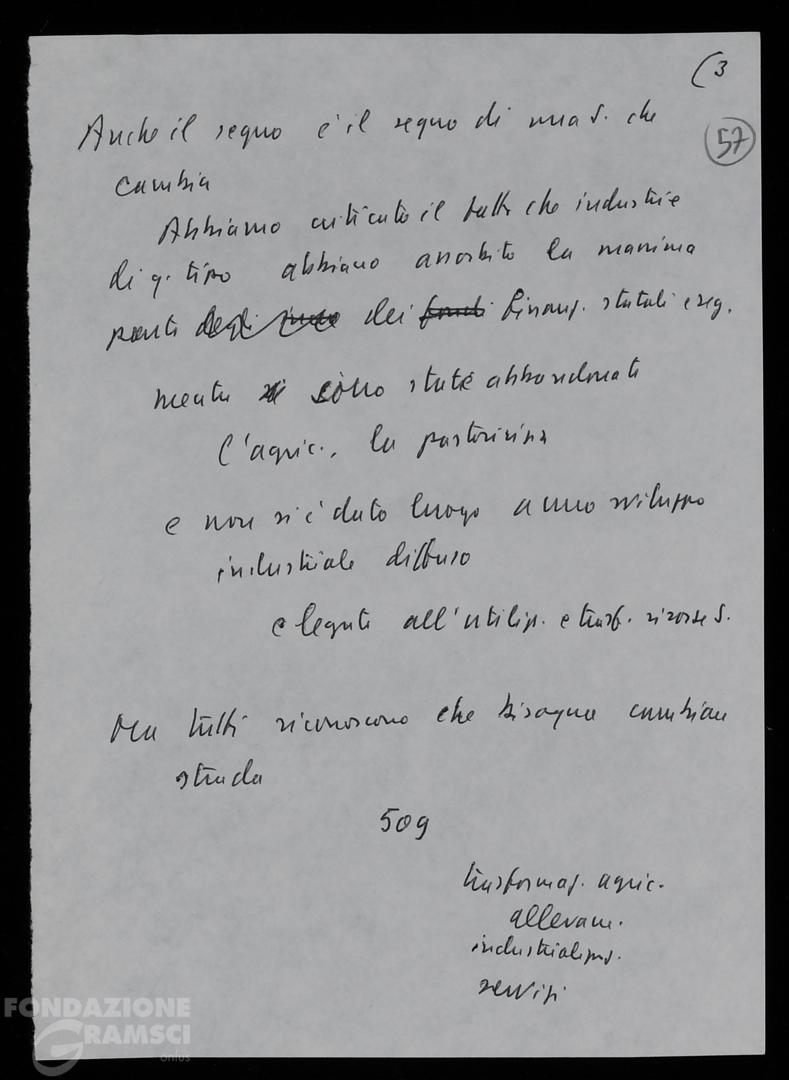 (3
57
Anche il segno è il segno di una S. che
cambia
Abbiamo criticato il fatto che industrie
di q. tipo abbiano assorbito la massima
parte degli indu dei fondi finanz. statali e reg.
mentre si sono state abbandonate
l'agric., la pastorizia
e non si è dato luogo a uno sviluppo
industriale diffuso
e legato all'utilizz. e trasf. risorse S.
Ma tutti riconoscono che bisogna cambiare
strada
509
trasformaz. agric.
allevam.
industrializz.
servizi
FONDAZIONE
GRAMSCI
onlus